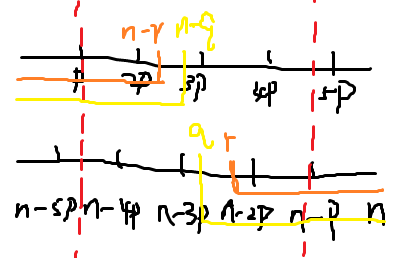 n-r n-q
p 2p 3p 4p 5p
q r
n-5p n-4p n-3p n-2p n-p n